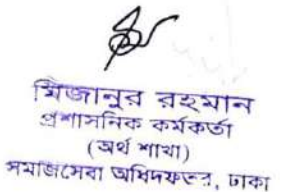 মিজানুর রহমান
প্রশাসনিক কর্মকর্তা
(অর্থ শাখা)
সমাজসেবা অধিদফতর, ঢাকা